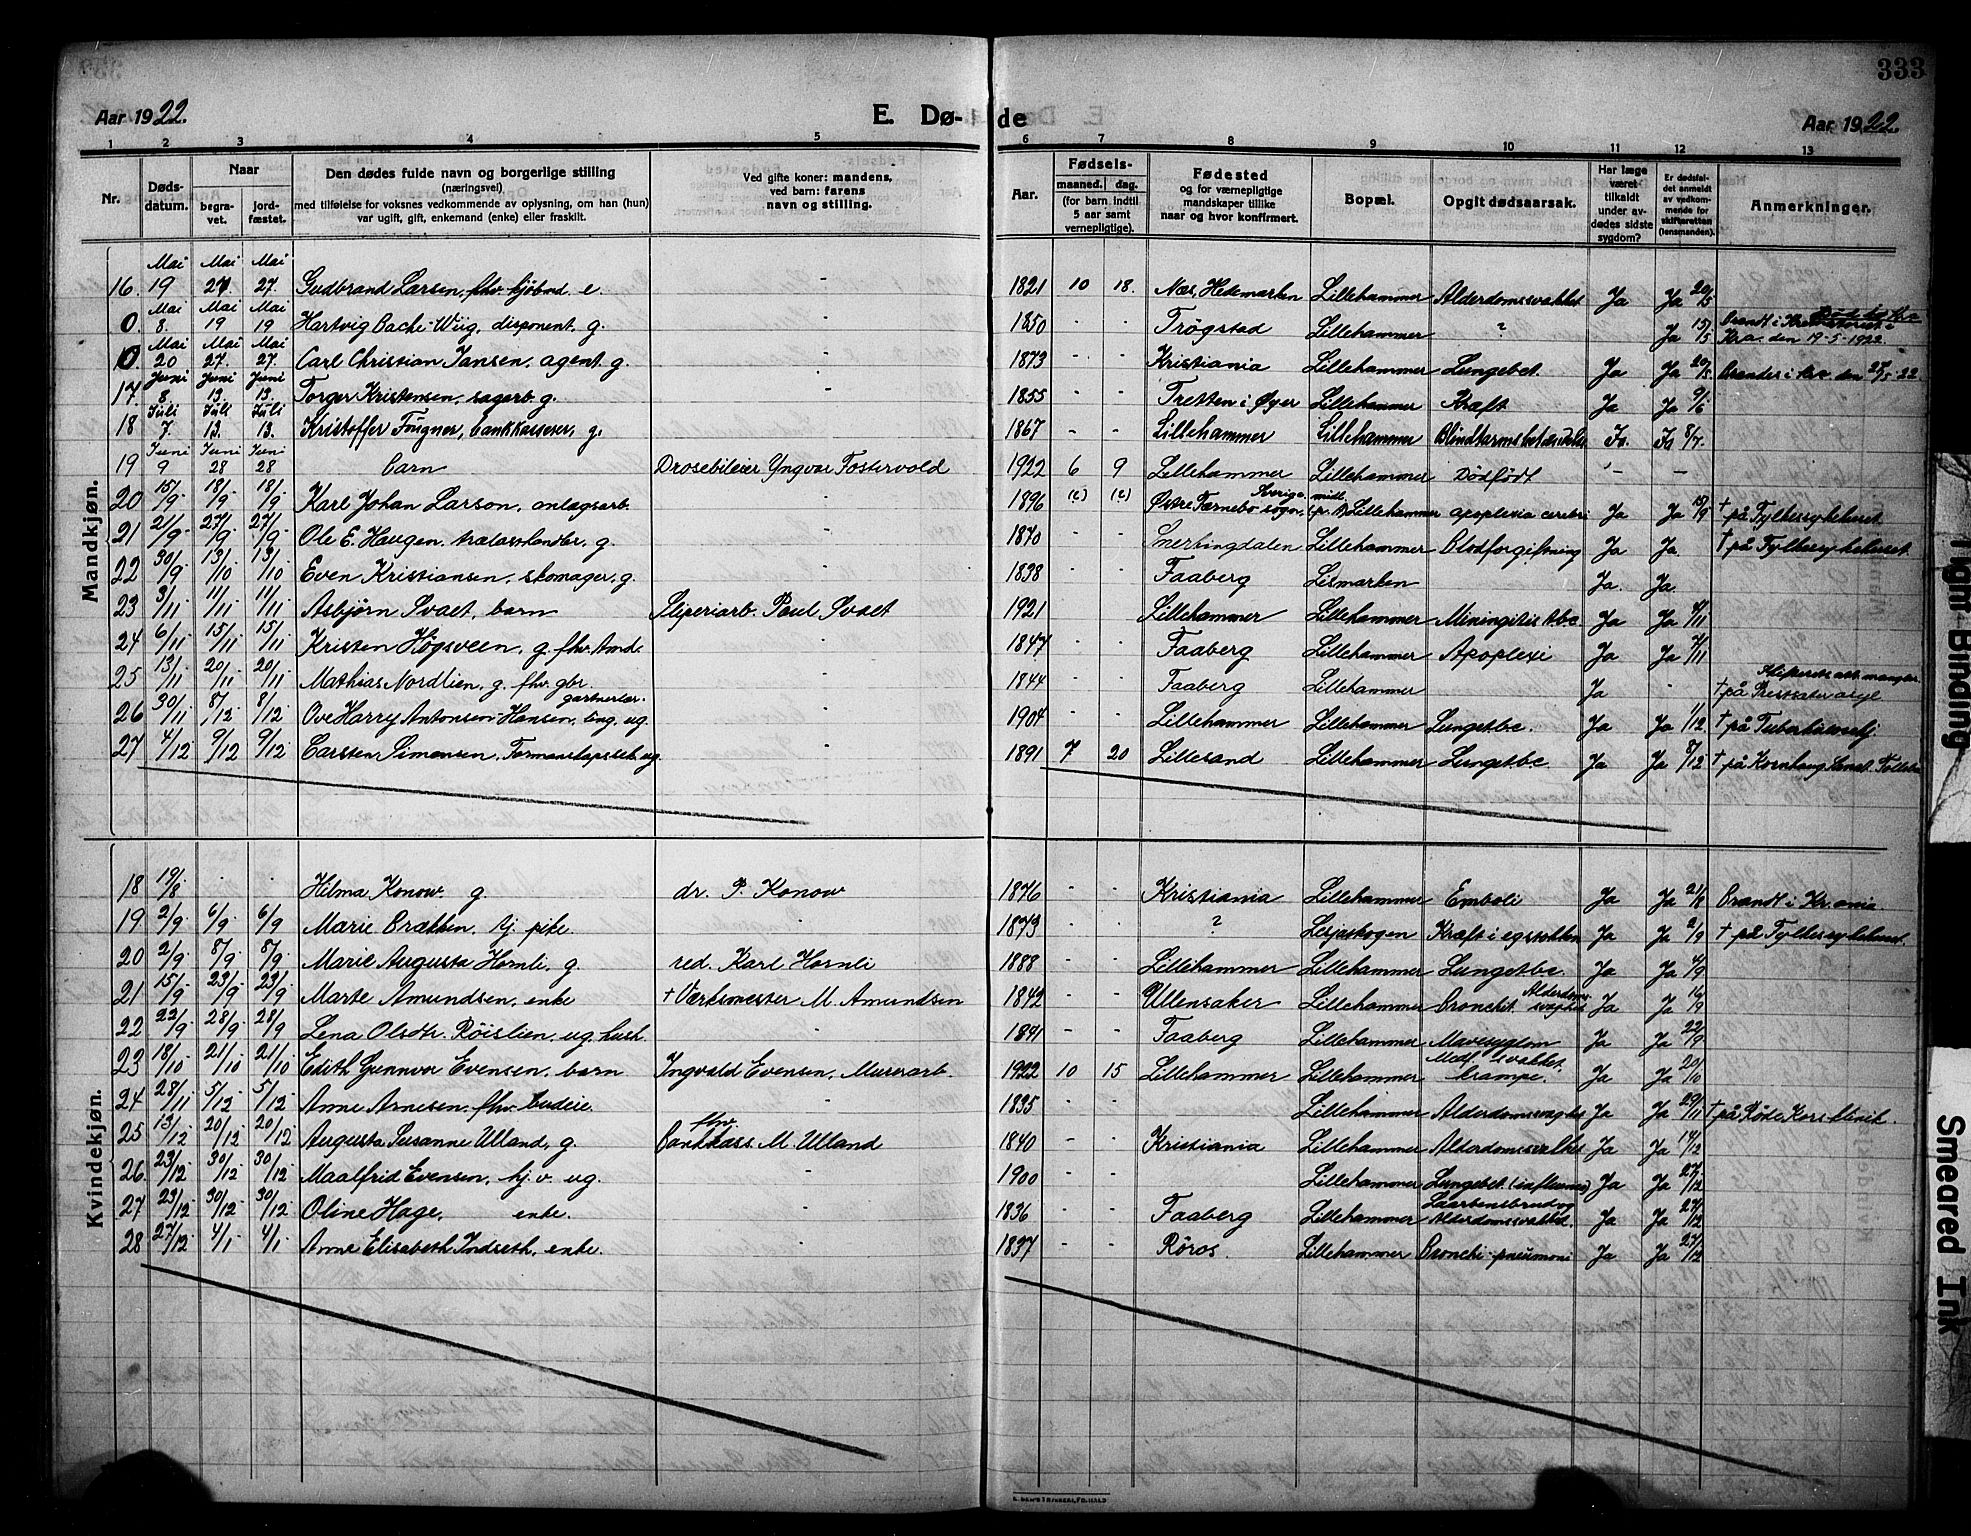 333
Aar 1922.
E. Døde
Aar 1922.
1 2 3 4 5 6 7 8 9 10 11 12 13
Nr.
Døds-datum.
Naar
begravet.
jordfæstet.
Den dødes fulde navn og borgerlige stilling
(næringsvei)
med tilføielse for voksnes vedkommende av oplysning, om han (hun)
var ugift, gift, enkemand (enke) eller fraskilt.
Ved gifte koner: mandens,
ved barn: farens
navn og stilling.
Aar.
Fødsels-
maaned. dag.
(for barn indtil
5 aar samt
vernepligtige).
Fødested
og for værnepligtige
mandskaper tillike
naar og hvor konfirmert.
Bopæl.
Opgit dødsaarsak.
Har læge
været
tilkaldt
under av-
dødes sidste
sygdom?
Er dødsfal-
det anmeldt
av vedkom-
mende for
skifteretten
(lensmanden).
Anmerkninger.
Mandkjøn.
Mai Mai Mai
16. 19 27 27. Gudbrand Larsen, fhv. e. - 1821 10 18. Næs, Hedemarken Lillehammer Alderdomssvakhet Ja Ja 20/5
Mai Mai Mai
0. 8. 19 19 Hartvig Bache-Wiig, disponent, g. - 1850 - - Trøgstad Lillehammer ? Ja 15/5 Brandt i Krematoriet i
Kra. den 19-5-1922.
Mai Mai Mai
0. 20 27. 27. Carl Christian Jansen, agent g. - 1873 - - Kristiania Lillehammer Lungebet. Ja Ja 20/5
Juni Juni Juni
17. 8. 13. 13. Torger Kristensen, sagarb. g. - 1855 - - Tretten i Øyer Lillehammer Kræft. Ja Ja 9/6
Juli Juli Juli
18 7. 13. 13. Kristoffer Fougner, bankkasserer, g. 1867 - - Lillehammer Lillehammer Blindtarmsbetændelse Ja. Ja 8/7.
Juni Juni Juni
19 9 28 28 barn Drosebileier Yngvar Fostervold 1922 6 9 Lillehammer Lillehammer Dødfødt - -
20 15/9 18/9 18/9 Karl Johan Larson, anlægsarb. - 1896 Østre Færnebo sogn, Sverige. Lillehammer apoplexia cerebri Ja Ja † på Fylkessykehuset.
21 21/9 27/9 27/9 Ole E. Haugen, g. - 1870 - - Lillehammer Blodforgiftning Ja Ja. † på Fylkessykehuset.
22 30/9 13/10 13/10 Even Kristiansen, skomager, g. - 1838 - - Faaberg Lismarken Ja. Ja.
23 3/11 11/11 11/11 Asbjørn Svaet, barn Sliperiarb. Paul Svaet 1921 - - Lillehammer Lillehammer Miningitis tbc Ja Ja 4/11
24 6/11 15/11 15/11 Kristen Høgsveen, g. fhv. - 1847 - - Faaberg Lillehammer Apoplexi Ja Ja 7/11
25 13/11 20/11 20/11 Mathias Nordlien, g. fhv. gbr. - 1844 - - Faaberg Lillehammer Ja - Skifterets att. mangler.
† på Prestsæter asyl
26 30/11 8/12 8/12 Ove Harry Antonsen-Hansen, gartnerlærling, ug. - 1904 - - Lillehammer Lillehammer Lungetbc. Ja Ja 1/12 † på Tuberkulosehj.
27 4/12 9/12 9/12 Carsten Simonsen, Formandskapssek. ug. - 1891 7 20 Lillesand Lillehammer Lungetbc. Ja Ja 8/12 † på Kornhaug Sanat. Follebu
Kvindekjøn.
18 19/8 - - Hilma Konow g. dr. P. Konow 1876 - - Kristiania Lillehammer Emboli Ja Ja 21/8 Brandt i Kr.ania
19 2/9 6/9 6/9 Marie Bratten, tj. pike. - 1873 - - ? Lesjaskogen Kræft i egstokken Ja Ja 2/9 † på Fylkessykehuset.
20 2/9 8/9 8/9 Marie Augusta Hornli, g. red. Karl Hornli 1888 - - Lillehammer Lillehammer Lungetbc. Ja Ja 4/9
21 15/9 23/9 23/9 Marte Amundsen, enke † Verksmester M. Amundsen 1842 - - Ullensaker Lillehammer Bronchit Alderdomssvakhet Ja Ja 16/9
22 22/9 28/9 28/9 Lena Olsdtr. Røislien, ug. hush. - 1841 - - Faaberg Lillehammer Mavesygdom Ja Ja 22/9
23 18/10 21/10 21/10 Edith Gunnvor Evensen, barn Ingvald Evensen, Murerarb. 1922 10 15 Lillehammer Lillehammer Medf. svakhet krampe. Ja Ja 20/10
24 28/11 5/12 5/12 Anne Arnesen, fhv. budeie. - 1835 - - Lillehammer Alderdomssvaghet Ja Ja 29/11 † på Røde Kors klinik.
25 13/12 20/12 20/12 Augusta Susanne Ulland, g. fhv. Bankkass. M. Ulland 1840 - - Kristiania Lillehammer Alderdomssvakhet Ja Ja 14/12
26 23/12 30/12 30/12 Maalfrid Evensen, hj. v. ug. - 1900 - - Lillehammer Lungebet. (influensa) Ja Ja 27/12
27 23/12 30/12 30/12 Oline Hage, enke. - 1836 - - Faaberg Lillehammer Laarbensbrud og Alderdomssvakhet. Ja Ja 27/12
28 27/12 4/1 4/1 Anne Elisabeth Indseth, enke. - 1837 - - Røros. Lillehammer Bronchi-pneumoni Ja Ja 27/12
Tight Binding
Smeared Ink